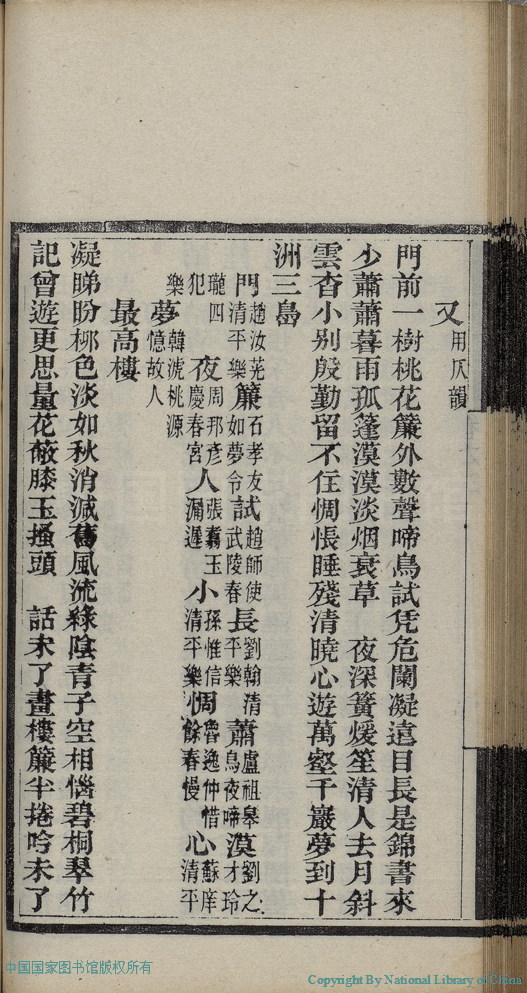 又用仄韻
門前一樹桃花簾外數聲啼鳥試凭危闌凝遠目長是錦書來
少蕭蕭暮雨孤篷漠漠淡烟衰草　夜深簧煖笙清人去月斜
雲杳小别殷勤留不住惆悵睡殘清曉心遊萬壑千巖夢到十
洲三島
門趙汝茪清平樂簾石孝友如夢令試趙師使武陵春長劉翰清平樂蕭盧祖皋烏夜啼漠劉之才玲
瓏四犯夜周邦彥慶春宮人張翥玉漏遲小孫惟信清平樂惆魯逸仲惜餘春慢心蘇庠清平
樂夢韓淲桃源憶故人
最高樓
凝睇盼柳色淡如秋消滅舊風流綠陰青子空相惱碧桐翠竹
記曾遊更思量花蔽膝玉搔頭　話未了畫樓簾半捲吟未了
中国国家图书馆版权所有
Copyright By National Library of China